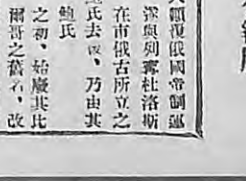 顚覆俄國帝制運
深與列寗杜洛斯
在市俄古所立之
氏去後、乃由其
鮑氏
之初、始廢其比
爾哥之舊名、改